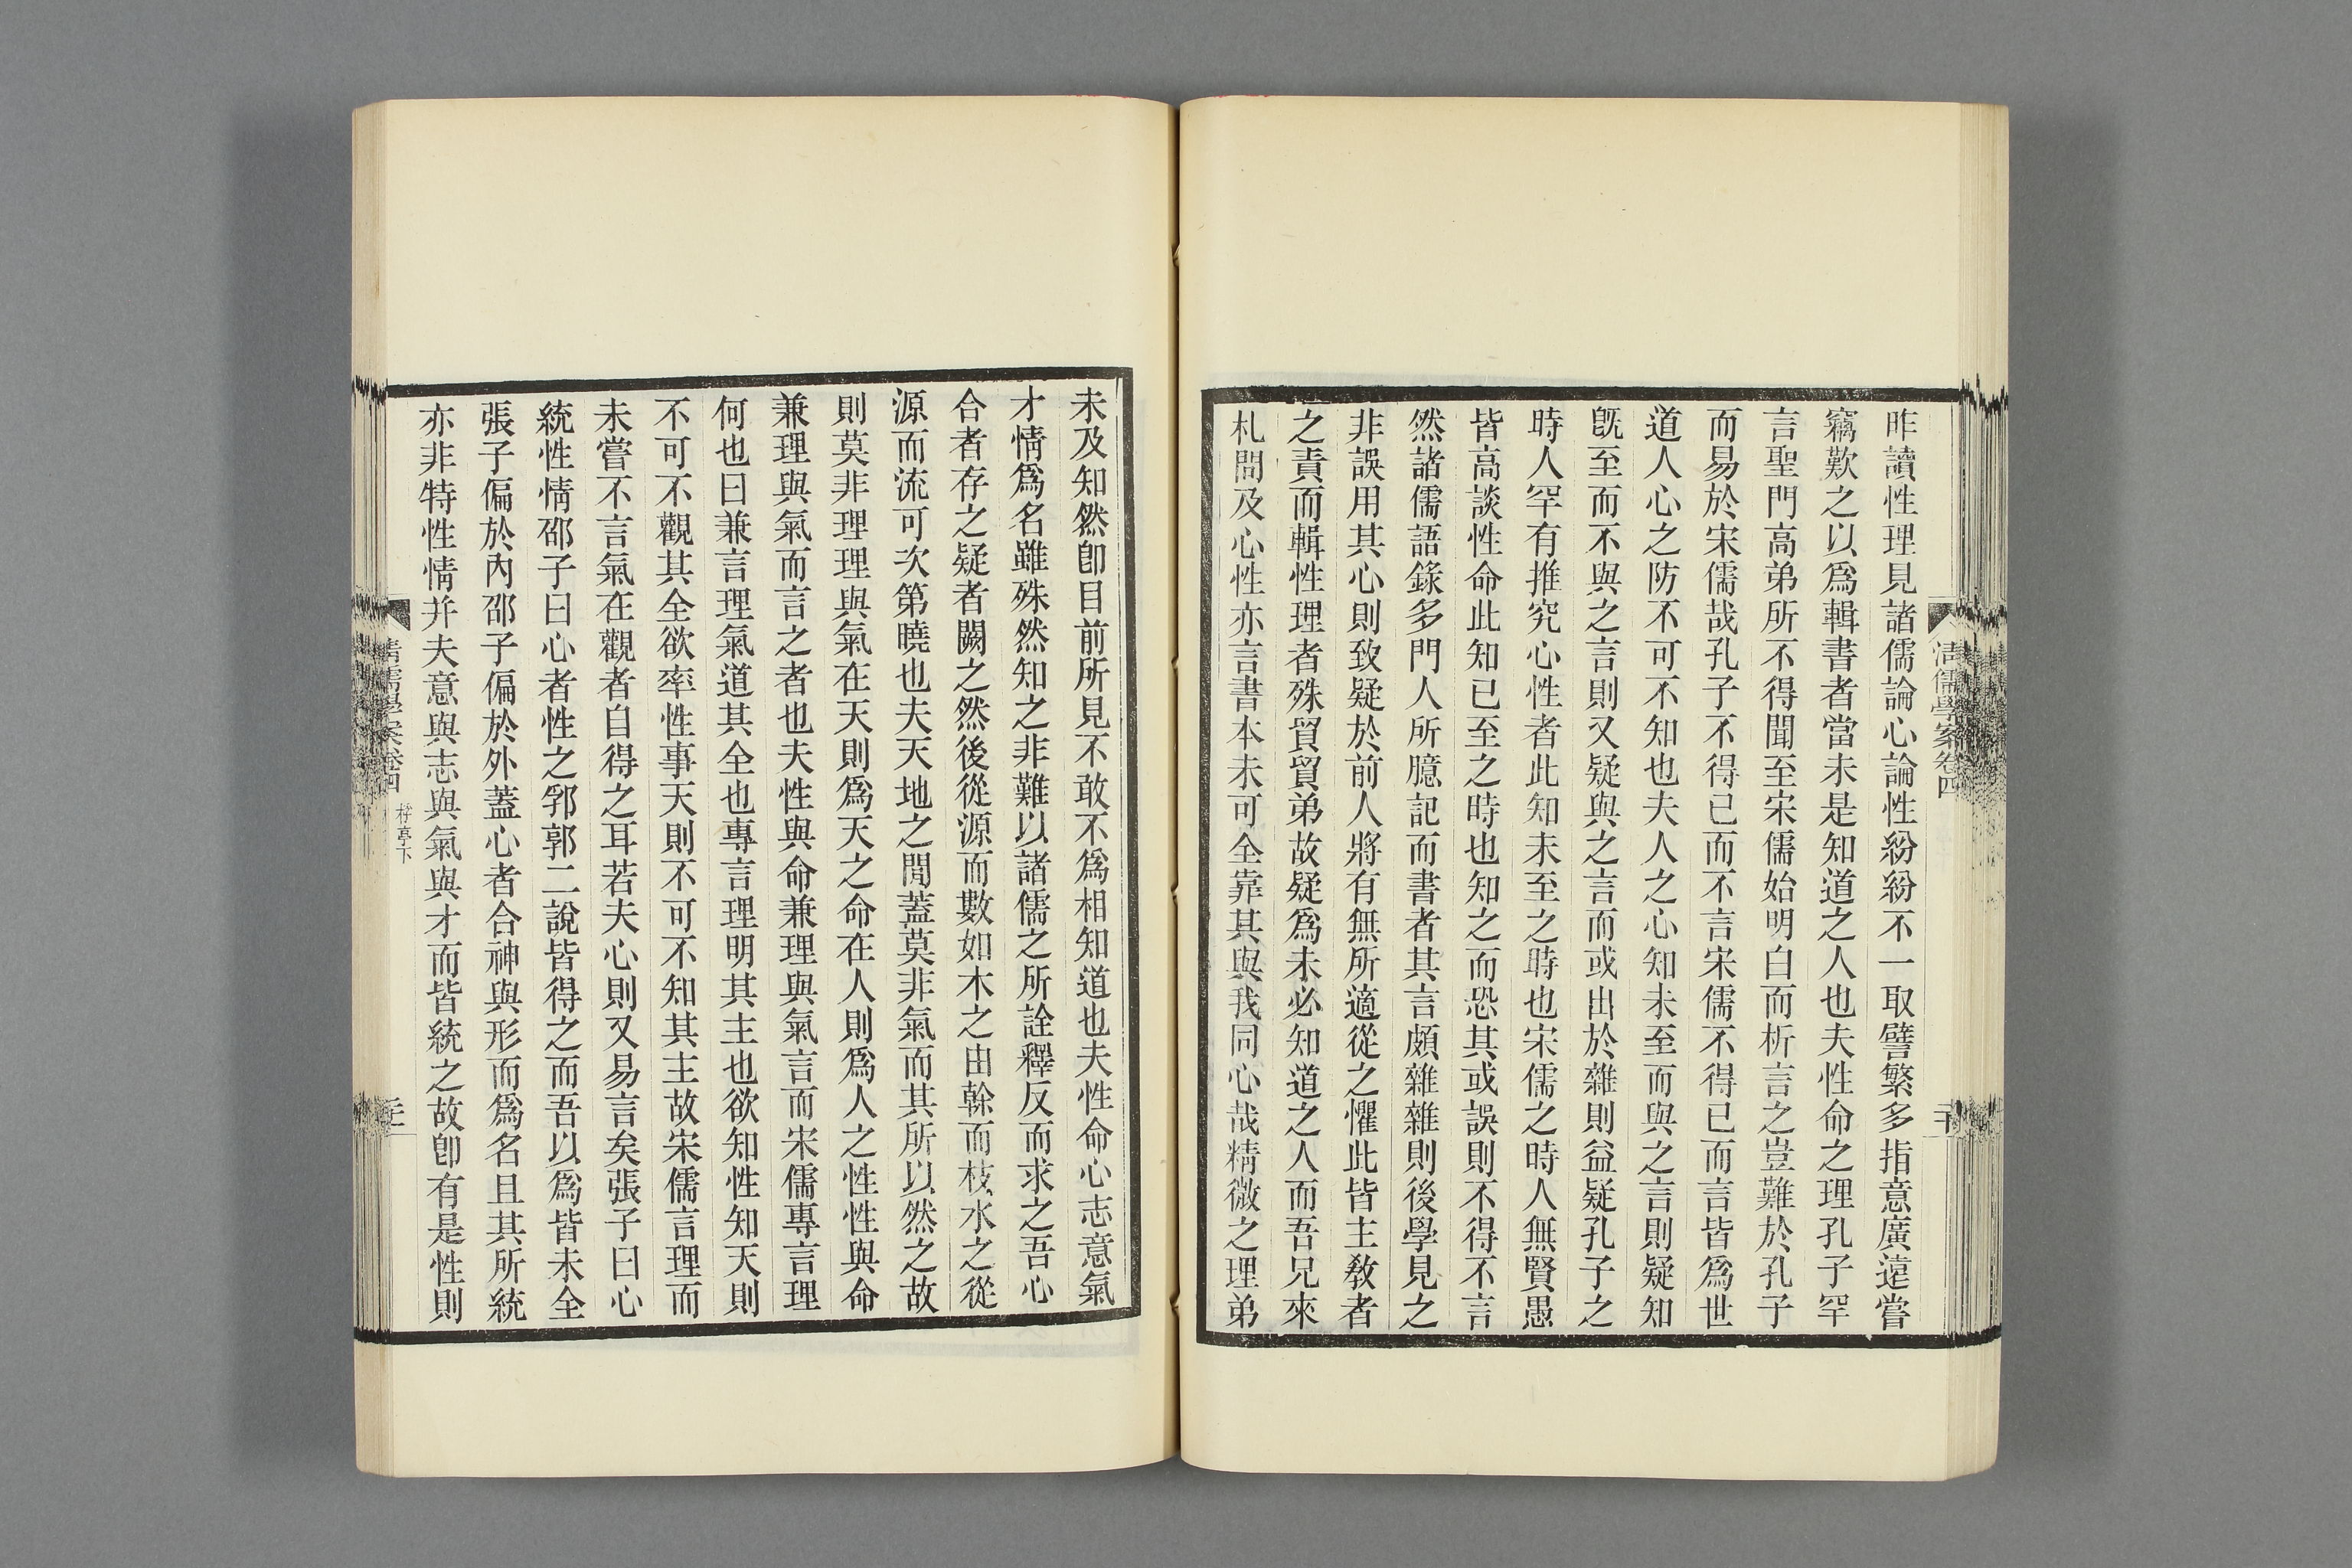 昨讀性理見諸儒論心論性紛紛不一取譬繁多指意廣遠嘗
竊歎之以爲輯書者當未是知道之人也夫性命之理孔子罕
言聖門高弟所不得聞至宋儒始明白而析言之豈難於孔子
而易於宋儒哉孔子不得已而不言宋儒不得已而言皆爲世
道人心之防不可不知也夫人之心知未至而與之言則疑知
旣至而不與之言則又疑與之言而或出於雜則益疑孔子之
時人罕有推究心性者此知未至之時也宋儒之時人無賢愚
皆高談性命此知已至之時也知之而恐其或誤則不得不言
然諸儒語錄多門人所臆記而書者其言頗雜雜則後學見之
非誤用其心則致疑於前人將有無所適從之懼此皆主敎者
之責而輯性理者殊貿貿弟故疑爲未必知道之人而吾兄來
札問及心性亦言書本未可全靠其與我同心哉精微之理弟
清儒學案卷四
二十
未及知然卽目前所見不敢不爲相知道也夫性命心志意氣
才情爲名雖殊然知之非難以諸儒之所詮釋反而求之吾心
合者存之疑者闕之然後從源而數如木之由榦而枝水之從
源而流可次第曉也夫天地之閒蓋莫非氣而其所以然之故
則莫非理理與氣在天則爲天之命在人則爲人之性性與命
兼理與氣而言之者也夫性與命兼理與氣言而宋儒專言理
何也曰兼言理氣道其全也專言理明其主也欲知性知天則
不可不觀其全欲率性事天則不可不知其主故宋儒言理而
未嘗不言氣在觀者自得之耳若夫心則又易言矣張子曰心
統性情邵子曰心者性之郛郭二說皆得之而吾以爲皆未全
張子偏於內邵子偏於外蓋心者合神與形而爲名且其所統
亦非特性情并夫意與志與氣與才而皆統之故卽有是性則
清儒學案卷四
桴亭下